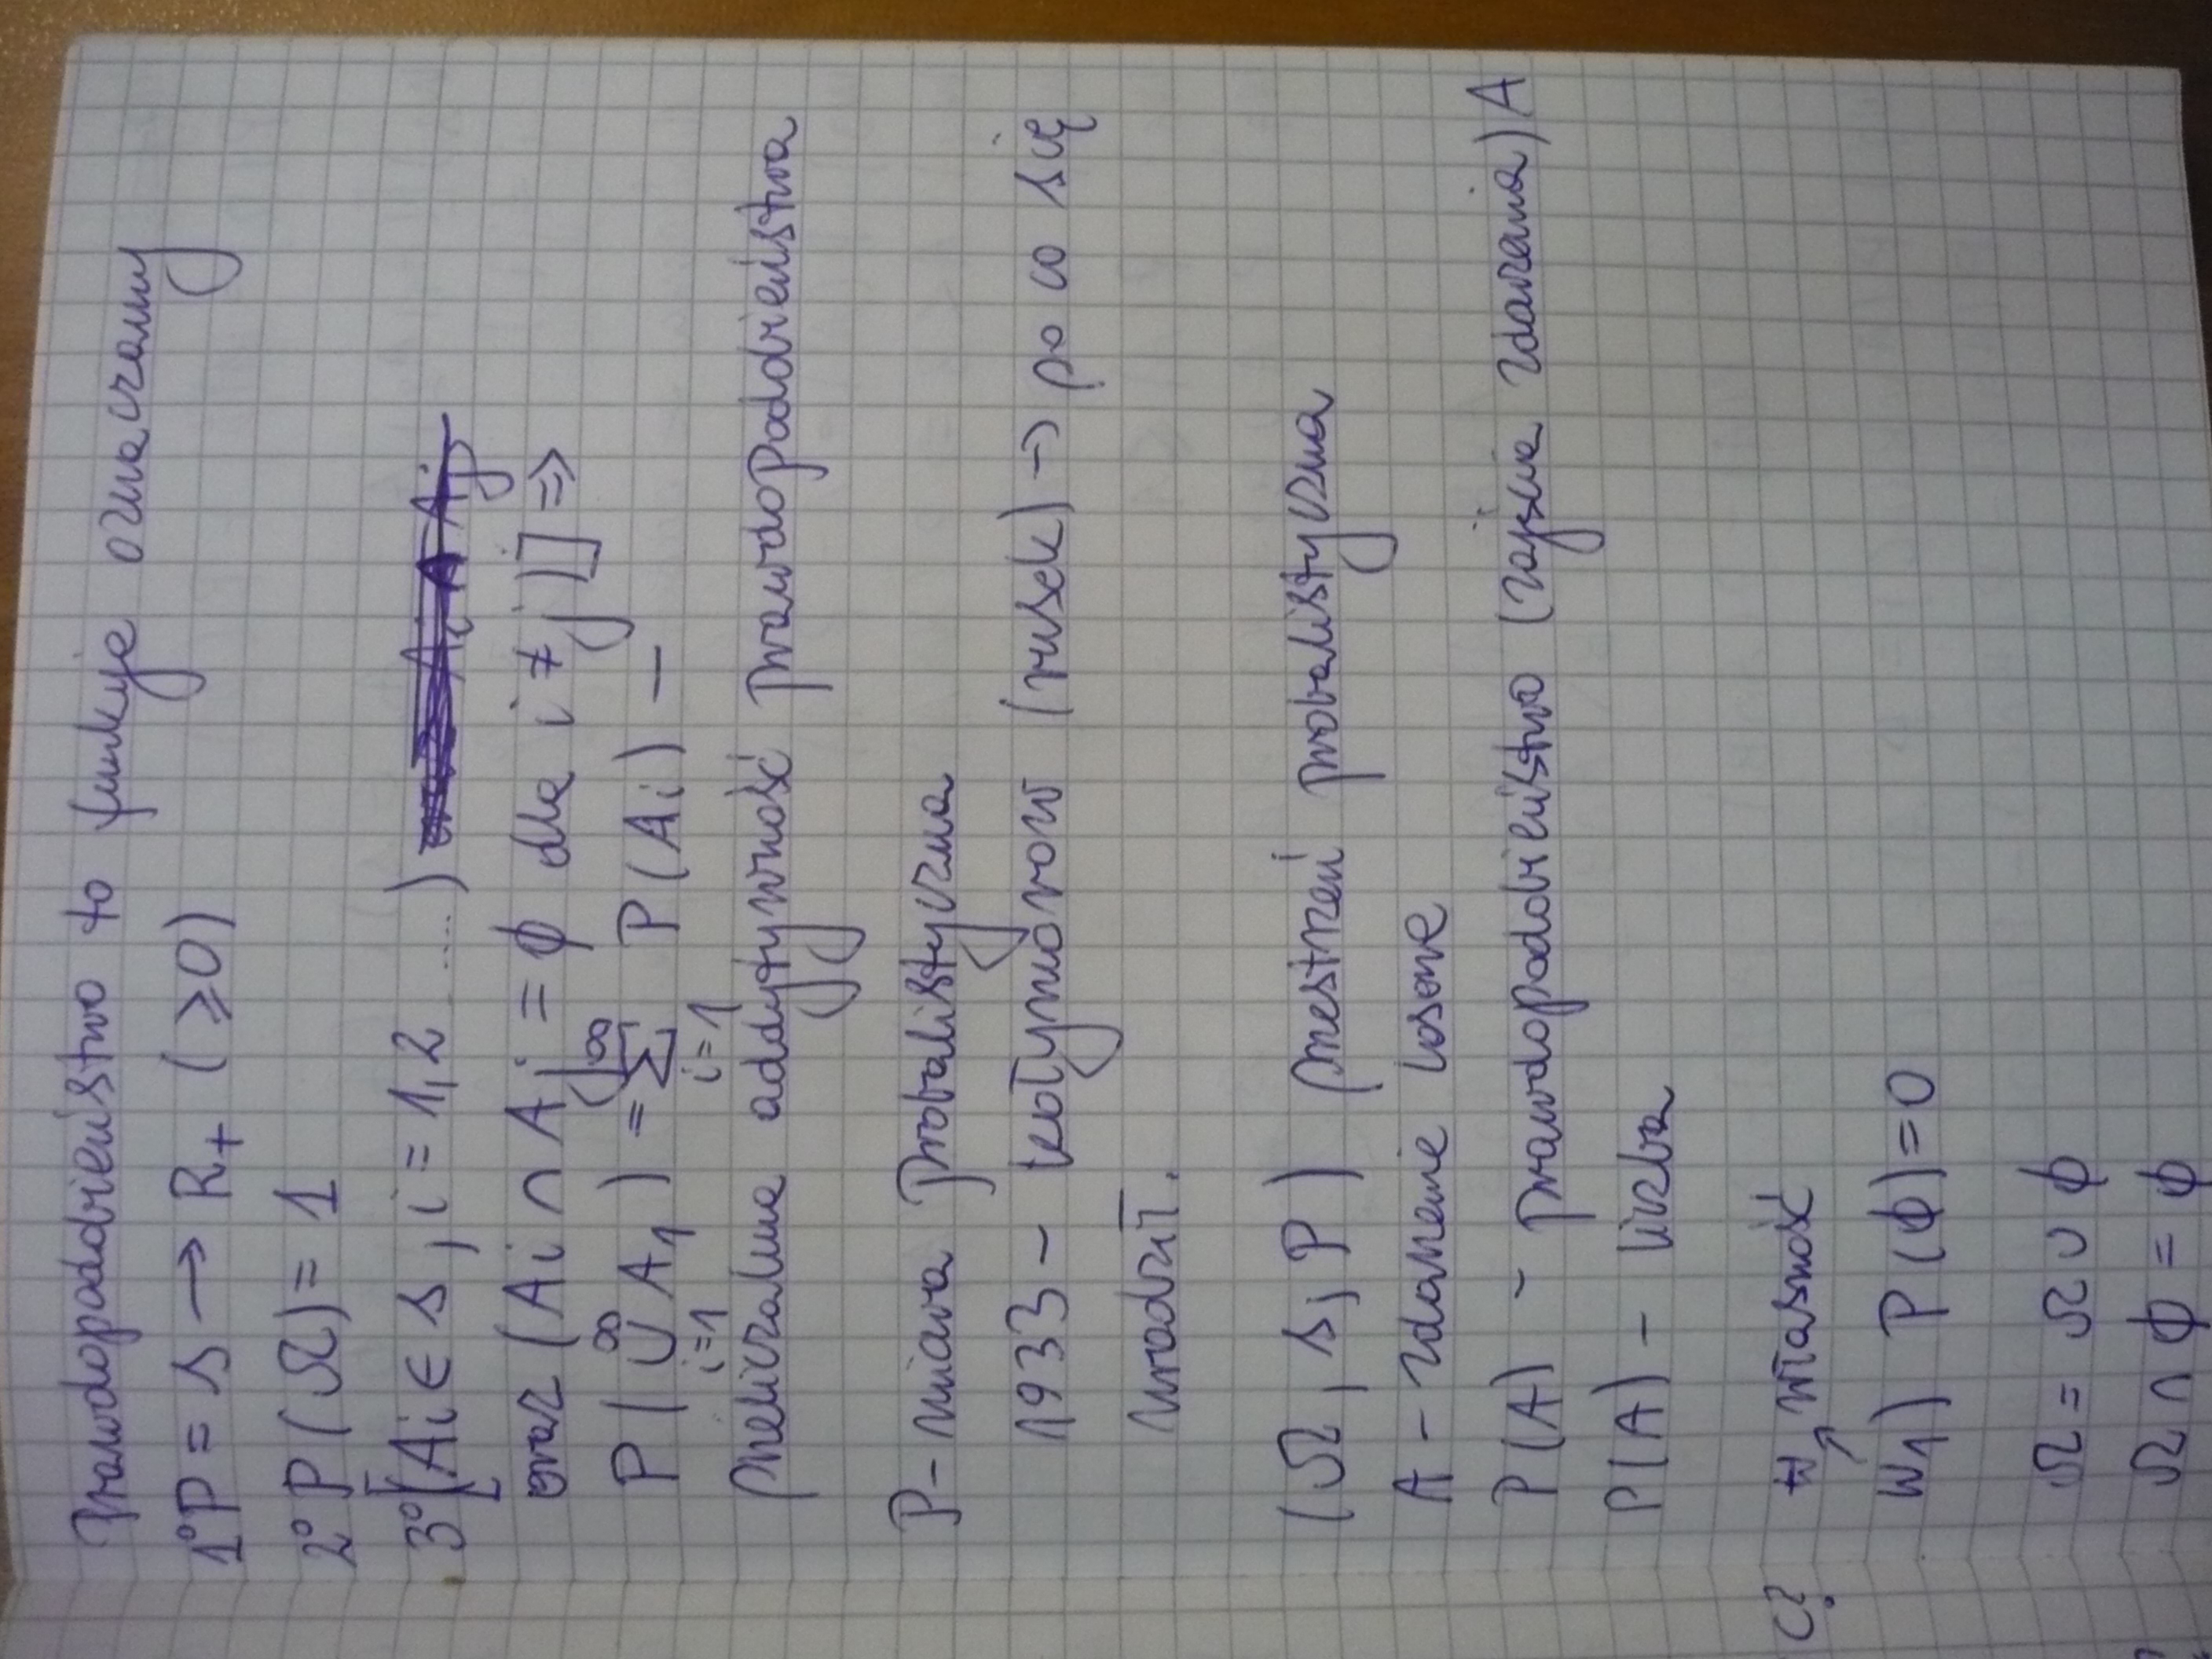 Prawdopodobieństwo to funkcje oznaczamy
1° P = S → R₊ (≥0)
2° P(Ω) = 1
3° [(Ai ∈ S, i = 1,2 ....)
oraz (Ai ∩ Aj = ϕ dla i ≠ j)] ⇒
P(∞∪i=1 A₁) = ∞∑i=1 P(Ai) –
przeliczalna addytywność prawdopodobieństwa
P - miara probalistyczna
1933 - kołymorow (rusek) → po co się
urodził.
(Ω, S, P) przestrzeń probalistyczna
A - zdarzenie losowe
P(A) - prawdopodobieństwo (zajścia zdarzenia) A
P(A) - liczba
C? własność
W1) P(ϕ)=0
Ω = Ω ∪ ϕ
Ω ∩ ϕ = ϕ